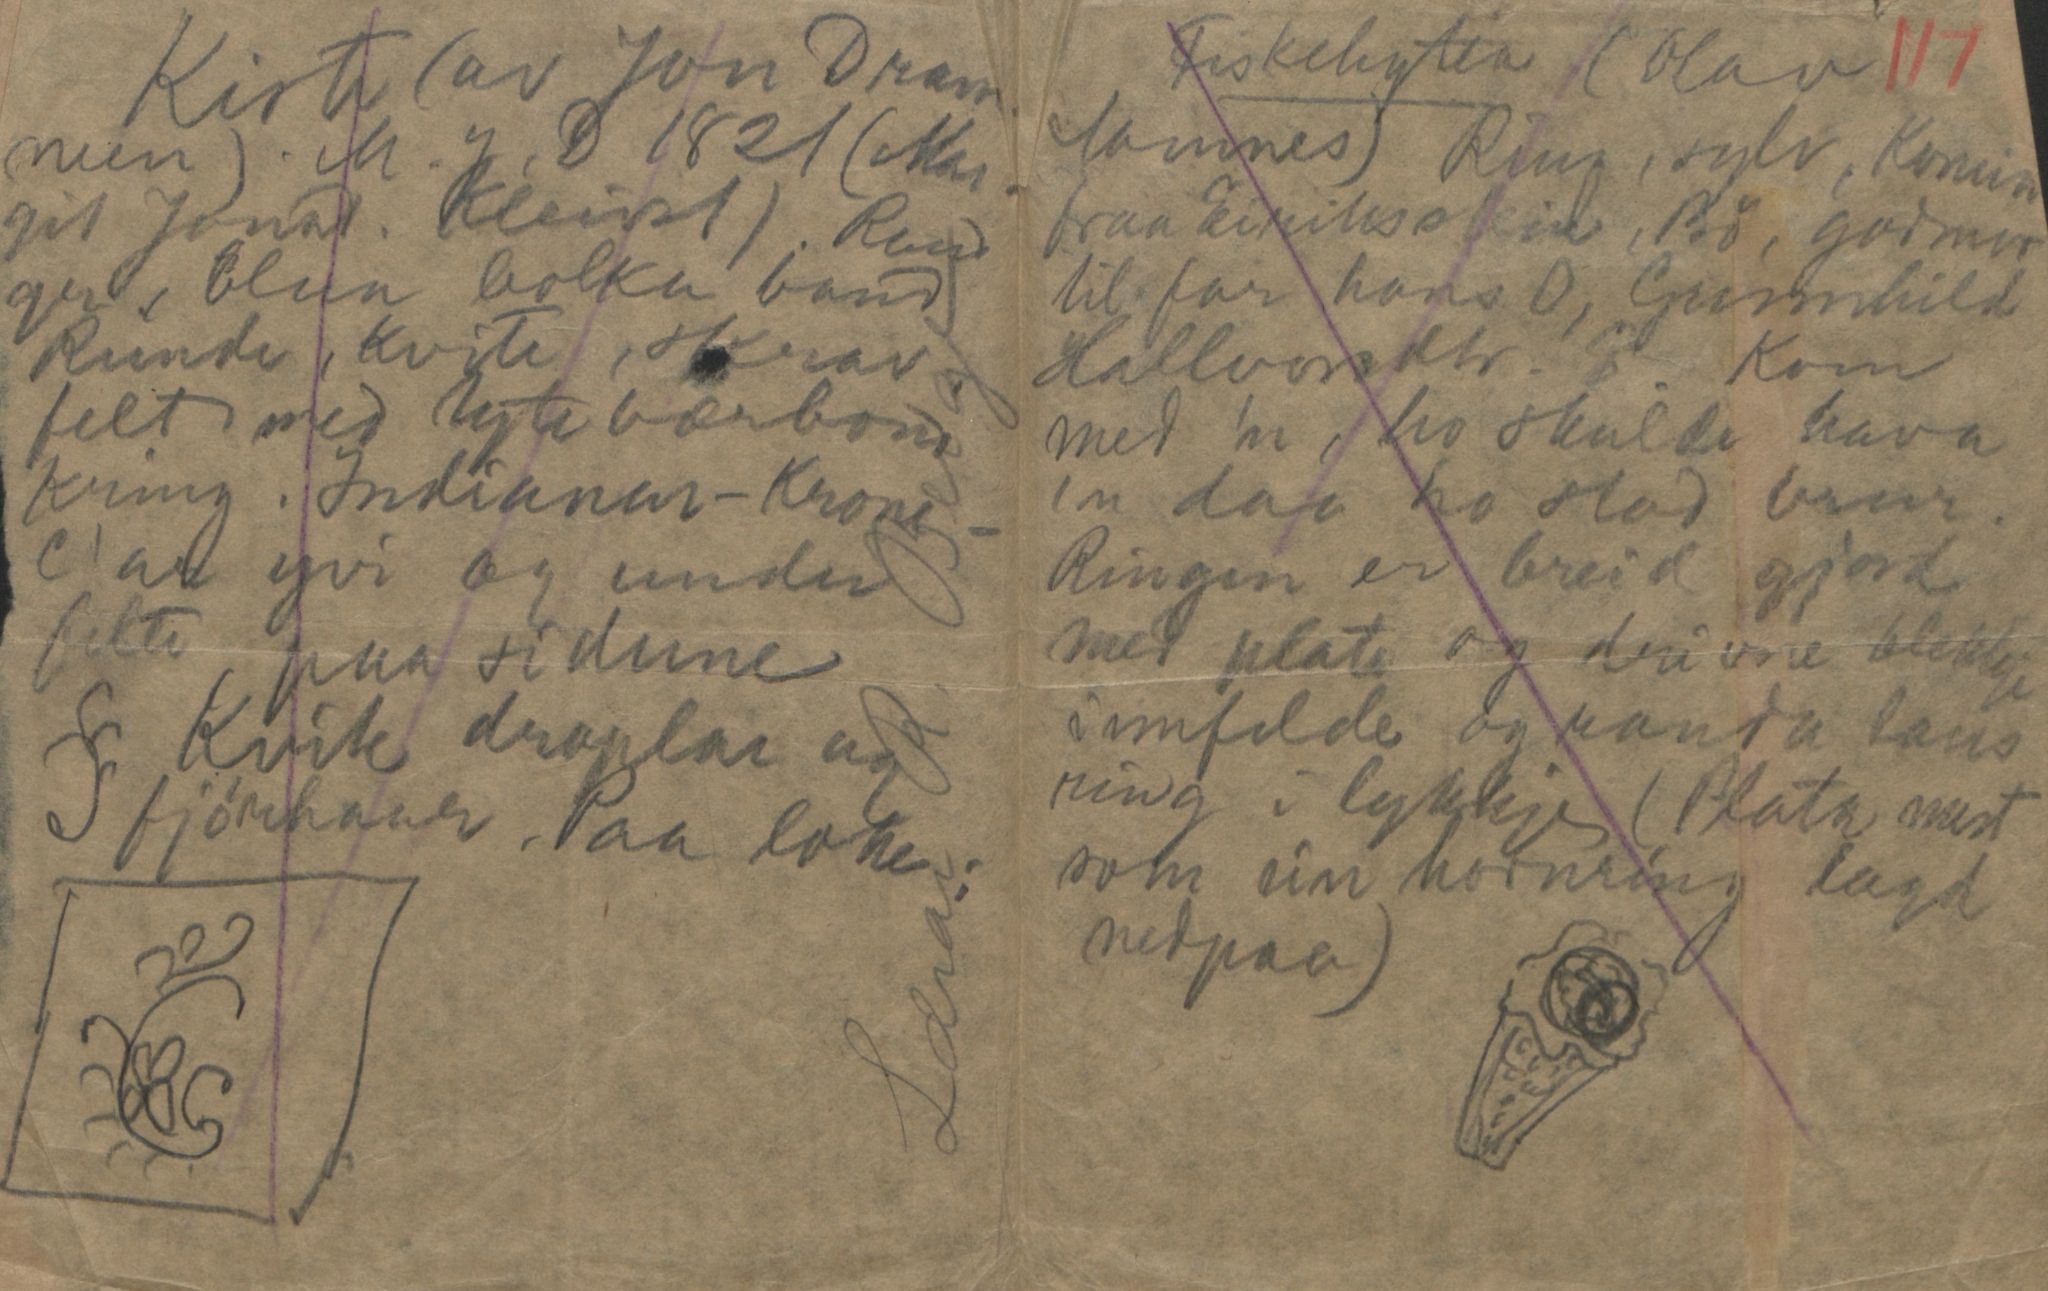 Kiste (av Jon Dram-
men). M. J. D 1821 (Mar-
git Jonsd. Kleivst). Raud
ger, blaa bolka band
Runde, kvite, skrav
felt med tytebærbom
kring. Indianar-krone-
C'ar yvi og under
felte paa sidune
Kvite droplar og
fjörhauer. Paa loke:
R. Berg
117
Fiskehytta (Olav
Tamnes) Ring, sylv, komin
fraa Eiriksstein, Bö, godmor
til far hans O, Gunnhild
Hallvorsdtr. E. Kom
med 'n, ho skulde hava
'n daa ho stod brur.
Ringen er breid gjord
med plate og drivne blekkje
innfelde og randa laus
ring i lykkje (Plata mest
som ein hornring lagd
nedpaa)